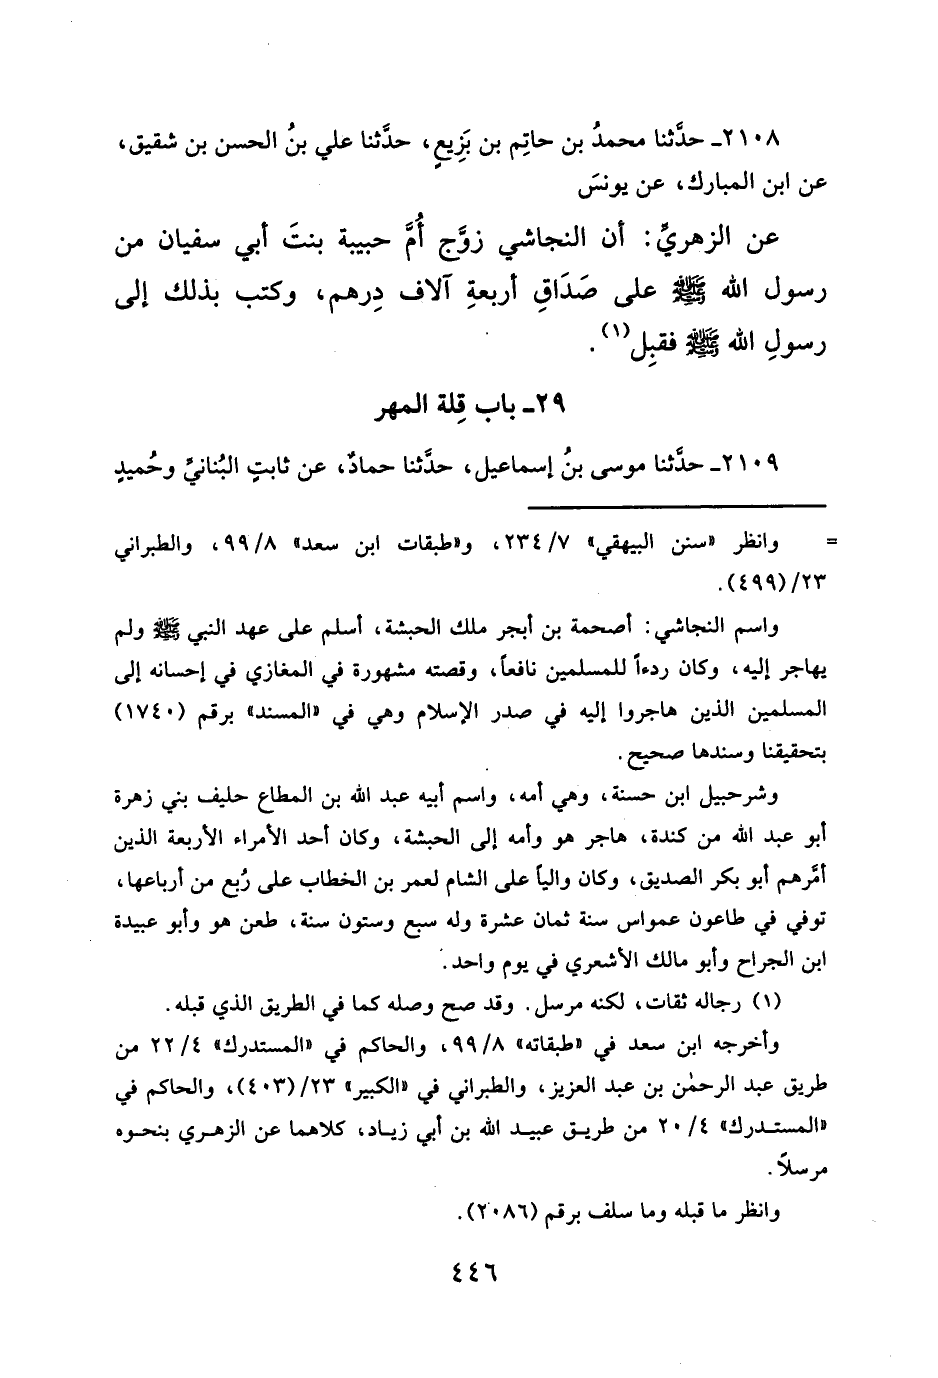 ٢١٠٨ـ حدَّثنا محمدُ بن حاتِم بن بَزِيعٍ، حدَّثنا علي بنُ الحسن بن شقيق،
عن ابن المبارك، عن يونسَ
عن الزهريِّ: أن النجاشي زوَّج أُمَّ حبيبة بنتَ أبي سفيان من
رسول الله ﷺ على صَدَاقِ أربعةِ آلاف دِرهم، وكتب بذلك إلى
رسولِ الله ﷺ فقبِل(١).
٢٩ـ باب قِلة المهر
٢١٠٩ـ حدَّثنا موسى بنُ إسماعيل، حدَّثنا حمادٌ، عن ثابتٍ البُنانيِّ وحُميدٍ
= وانظر «سنن البيهقي» ٧/ ٢٣٤، و«طبقات ابن سعد» ٨/ ٩٩، والطبراني
٢٣/ (٤٩٩).
واسم النجاشي: أصحمة بن أبجر ملك الحبشة، أسلم على عهد النبي ﷺ ولم
يهاجر إليه، وكان ردءاً للمسلمين نافعاً، وقصته مشهورة في المغازي في إحسانه إلى
المسلمين الذين هاجروا إليه في صدر الإسلام وهي في «المسند» برقم (١٧٤٠)
بتحقيقنا وسندها صحيح.
وشرحبيل ابن حسنة، وهي أمه، واسم أبيه عبد الله بن المطاع حليف بني زهرة
أبو عبد الله من كندة، هاجر هو وأمه إلى الحبشة، وكان أحد الأمراء الأربعة الذين
أمَّرهم أبو بكر الصديق، وكان والياً على الشام لعمر بن الخطاب على رُبع من أرباعها،
توفي في طاعون عمواس سنة ثمان عشرة وله سبع وستون سنة، طعن هو وأبو عبيدة
ابن الجراح وأبو مالك الأشعري في يوم واحد.
(١) رجاله ثقات، لكنه مرسل. وقد صح وصله كما في الطريق الذي قبله.
وأخرجه ابن سعد في «طبقاته» ٨/ ٩٩، والحاكم في «المستدرك» ٤/ ٢٢ من
طريق عبد الرحمٰن بن عبد العزيز، والطبراني في «الكبير» ٢٣/ (٤٠٣)، والحاكم في
«المستدرك» ٤/ ٢٠ من طريق عبيد الله بن أبي زياد، كلاهما عن الزهري بنحوه
مرسلاً.
وانظر ما قبله وما سلف برقم (٢٠٨٦).
٤٤٦